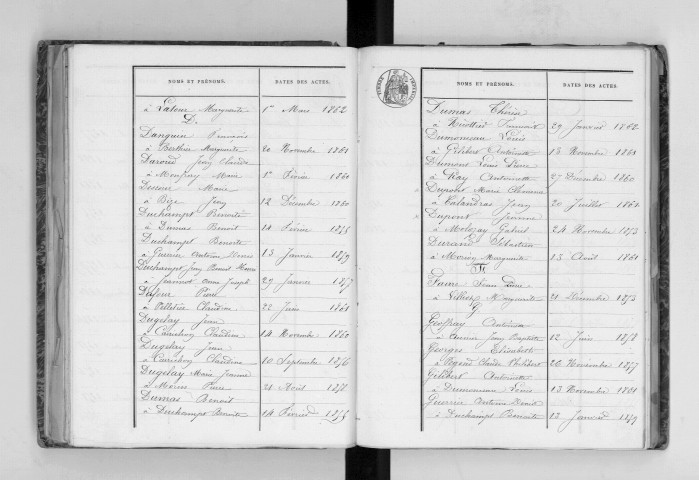 NOMS ET PRÉNOMS. DATES DES ACTES.
à Latour Marguerite 1er Mars 1862
D.
Danguin François
à Berthier Marguerite 20 Novembre 1861
Daroud Jean Claude
à Monfray Marie 1er Février 1860
Marie
à Bize Jean 12 Décembre 1860
Duchampt Benoite
à Dumas Benoit 14 Février 1875
Duchampt Benoite
à Guerrier Antoine Benoit 13 Janvier 1879
Duchampt Jean Benoit
à Jeannot Anne Joseph 29 Janvier 1877
Dufour Pierre
à Pelletier Claudine 22 Juin 1861
Dugelay Jean
à Claudine 14 Novembre 1860
Dugelay Jean
à Claudine 10 Septembre 1876
Dugelay Marie Jeanne
à Morin Pierre 21 Août 1878
Dumas Benoit
à Duchampt Benoite 14 Février 1875
NOMS ET PRÉNOMS. DATES DES ACTES.
Dumas Thérèse
à 29 Janvier 1862
Dumonceau Louis
à Gilibert Antoinette 13 Novembre 1861
Dumont Louis Pierre
à Ray Antoinette 27 Décembre 1860
Dupont Marie Clemence
à Calandras Jean 20 Juillet 1861
Dupont Jeanne
à Gabriel 24 Novembre 1873
Durand Sébastien
à Marguerite 15 Avril 1861
F
Favre Jean Pierre
à Marguerite 21 Décembre 1873
G
Geoffray Antoinette
à Jean Baptiste 12 Juin 1878
Georges Elisabeth
à Claude Philibert 26 Novembre 1877
Gilibert Antoinette
à Dumonceau Louis 13 Novembre 1861
Guerrier Antoine Benoit
à Duchampt Benoite 13 Janvier 1879